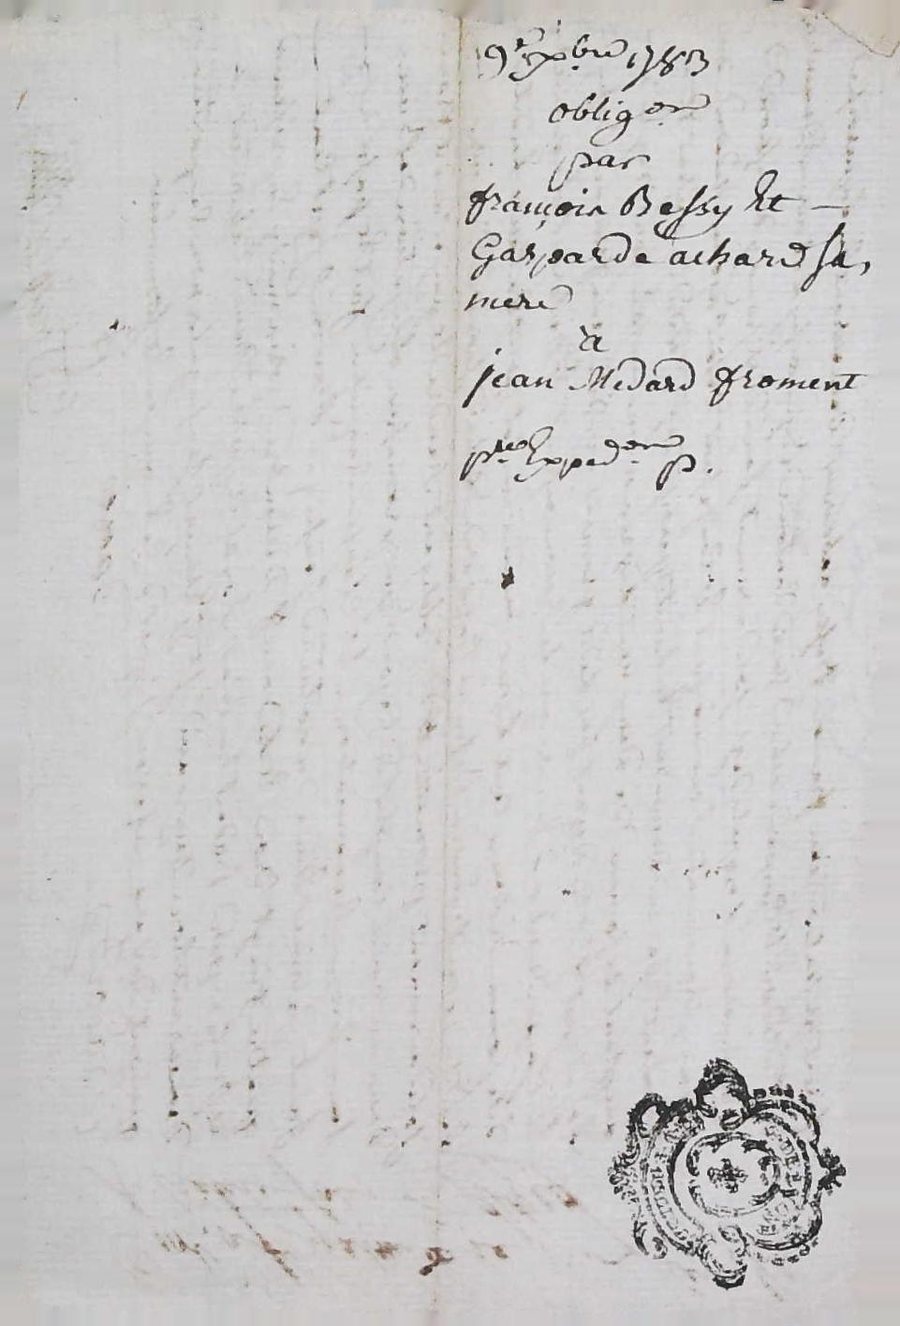 9e xbre 1783
obligon
par
françois Bessy Et —
Gasparde achard sa,
mere
a
jean Medard froment
pre Expedon p.